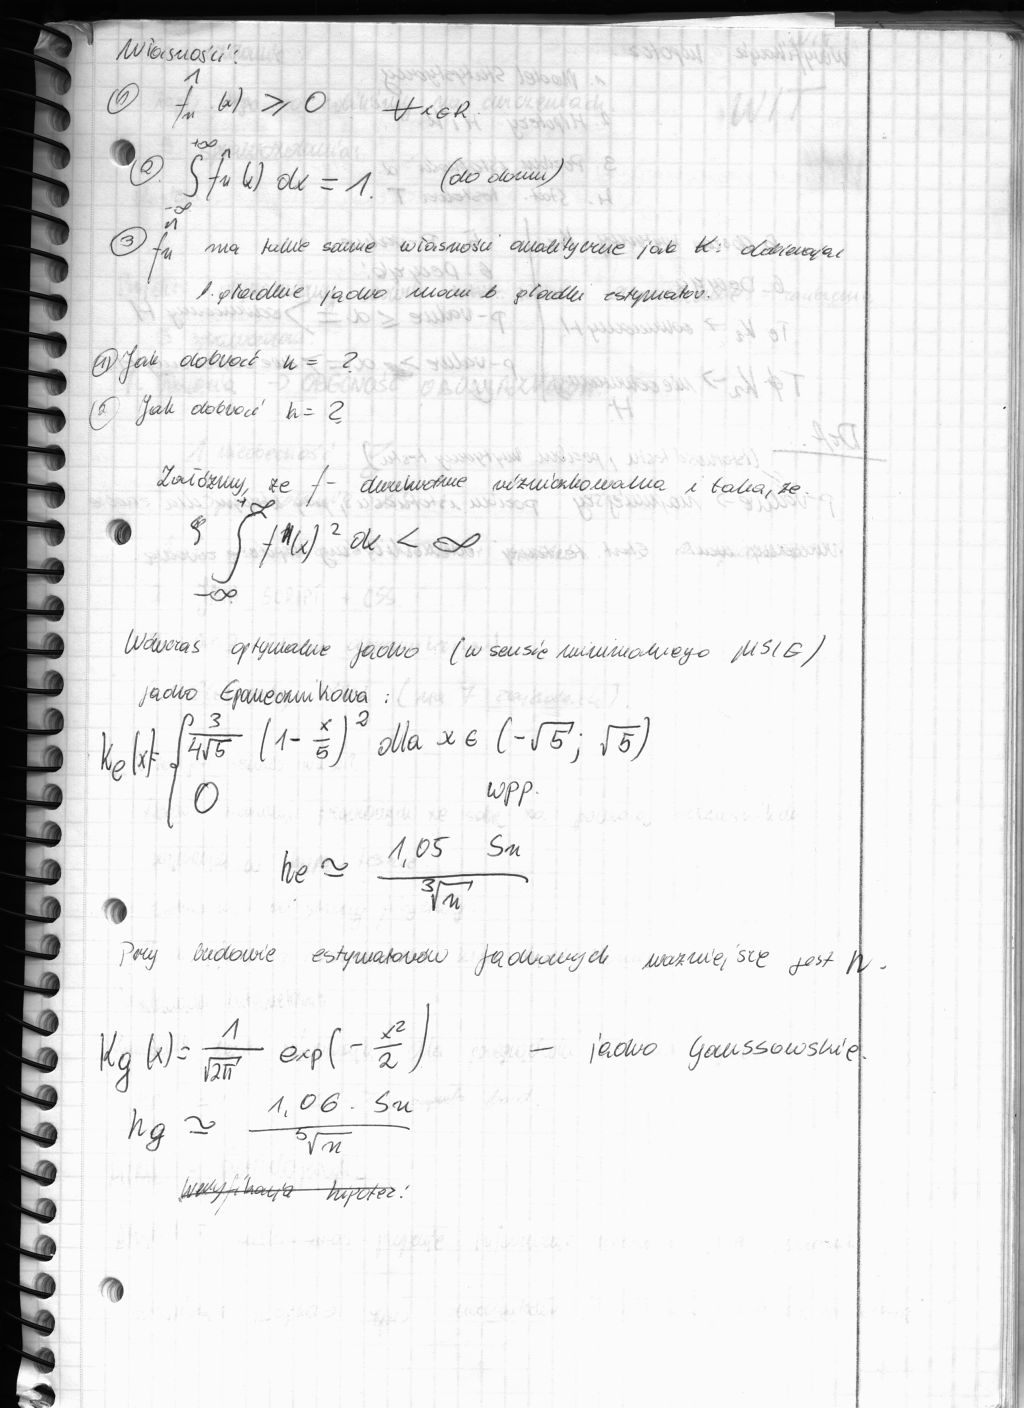 Własności:
① f̂n (x) ⩾ 0 ∀ x∈R.
② ∫_{-∞}^{+∞} f̂n(x) dx = 1. (do domu)
③ f̂n ma takie same własności analityczne jak K: dobierając
gładkie jądro mam gładki estymator.
① Jak dobrać K = ?
② Jak dobrać h = ?
Załóżmy, że f - dwukrotnie różniczkowalna i taka, że
∫_{-∞}^{+∞} f''(x)² dx < ∞
Wówczas optymalne jądro (w sensie minimalnego MSIE)
jądro Epanecznikowa:
Ke(x) = { 3/(4√5) (1 - x/5)² dla x ∈ (-√5; √5)
0 wpp.
he ≃ 1,05 Sn / ∛n
Przy budowie estymatorów jądrowych ważniejsze jest h.
Kg(x) = 1/√2π exp(- x²/2) — jądro Gaussowskie.
hg ≃ 1,06 · Sn / ⁵√n
Weryfikacja hipotez: